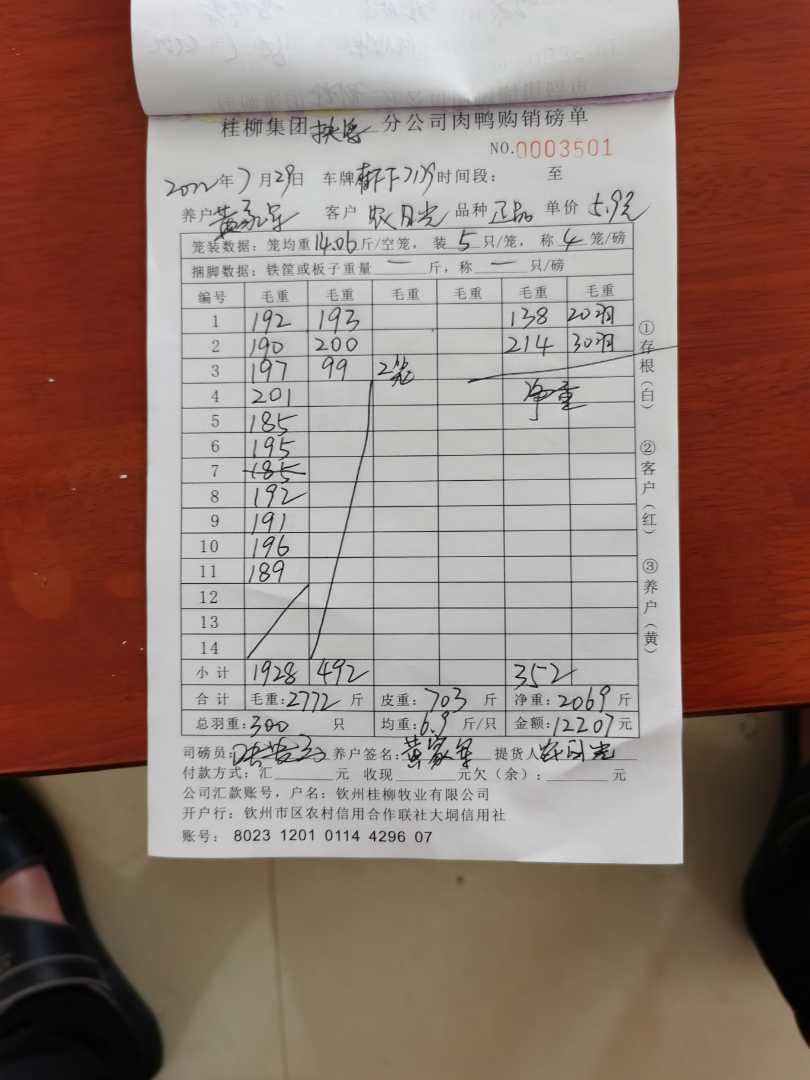 桂柳集团扶绥分公司肉鸭购销磅单
NO.0003501
2022年7月29日 车牌 7129 时间段： 至
养户黄家军 客户 农月光 品种 正品 单价 5.9元
笼装数据：笼均重14.06斤/空笼，装5只/笼，称4笼/磅
捆脚数据：铁筐或板子重量 — 斤，称 — 只/磅
编号 毛重 毛重 毛重 毛重 毛重 毛重
1 192 193 138 20羽
2 190 200 214 30羽
3 197 99 2笼
4 201 净重
5 185
6 195
7 185
8 192
9 191
10 196
11 189
12
13
14
小计 1928 492 352
合计 毛重：2772斤 皮重：703斤 净重：2069斤
总羽重：300只 均重：6.9斤/只 金额：12207元
司磅员： 养户签名：黄家军 提货人农月光
付款方式：汇____元 收现____元欠（余）：____元
公司汇款账号，户名：钦州桂柳牧业有限公司
开户行：钦州市区农村信用合作联社大垌信用社
账号： 8023 1201 0114 4296 07
①存根（白）
②客户（红）
③养户（黄）